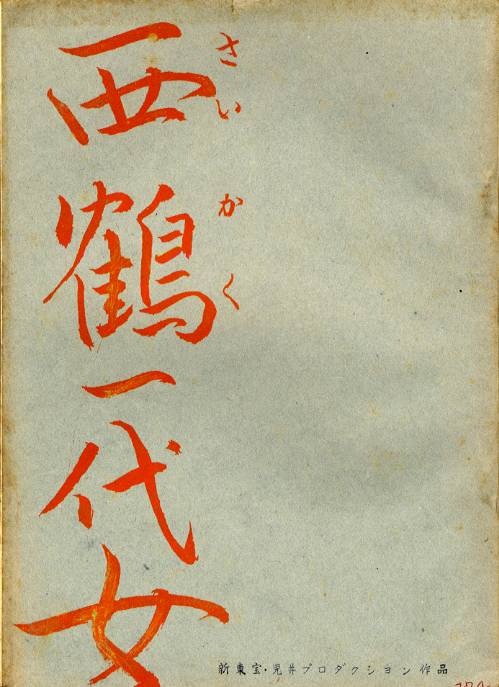 西鶴一代女
さいかく
新東宝・児井プロダクション作品